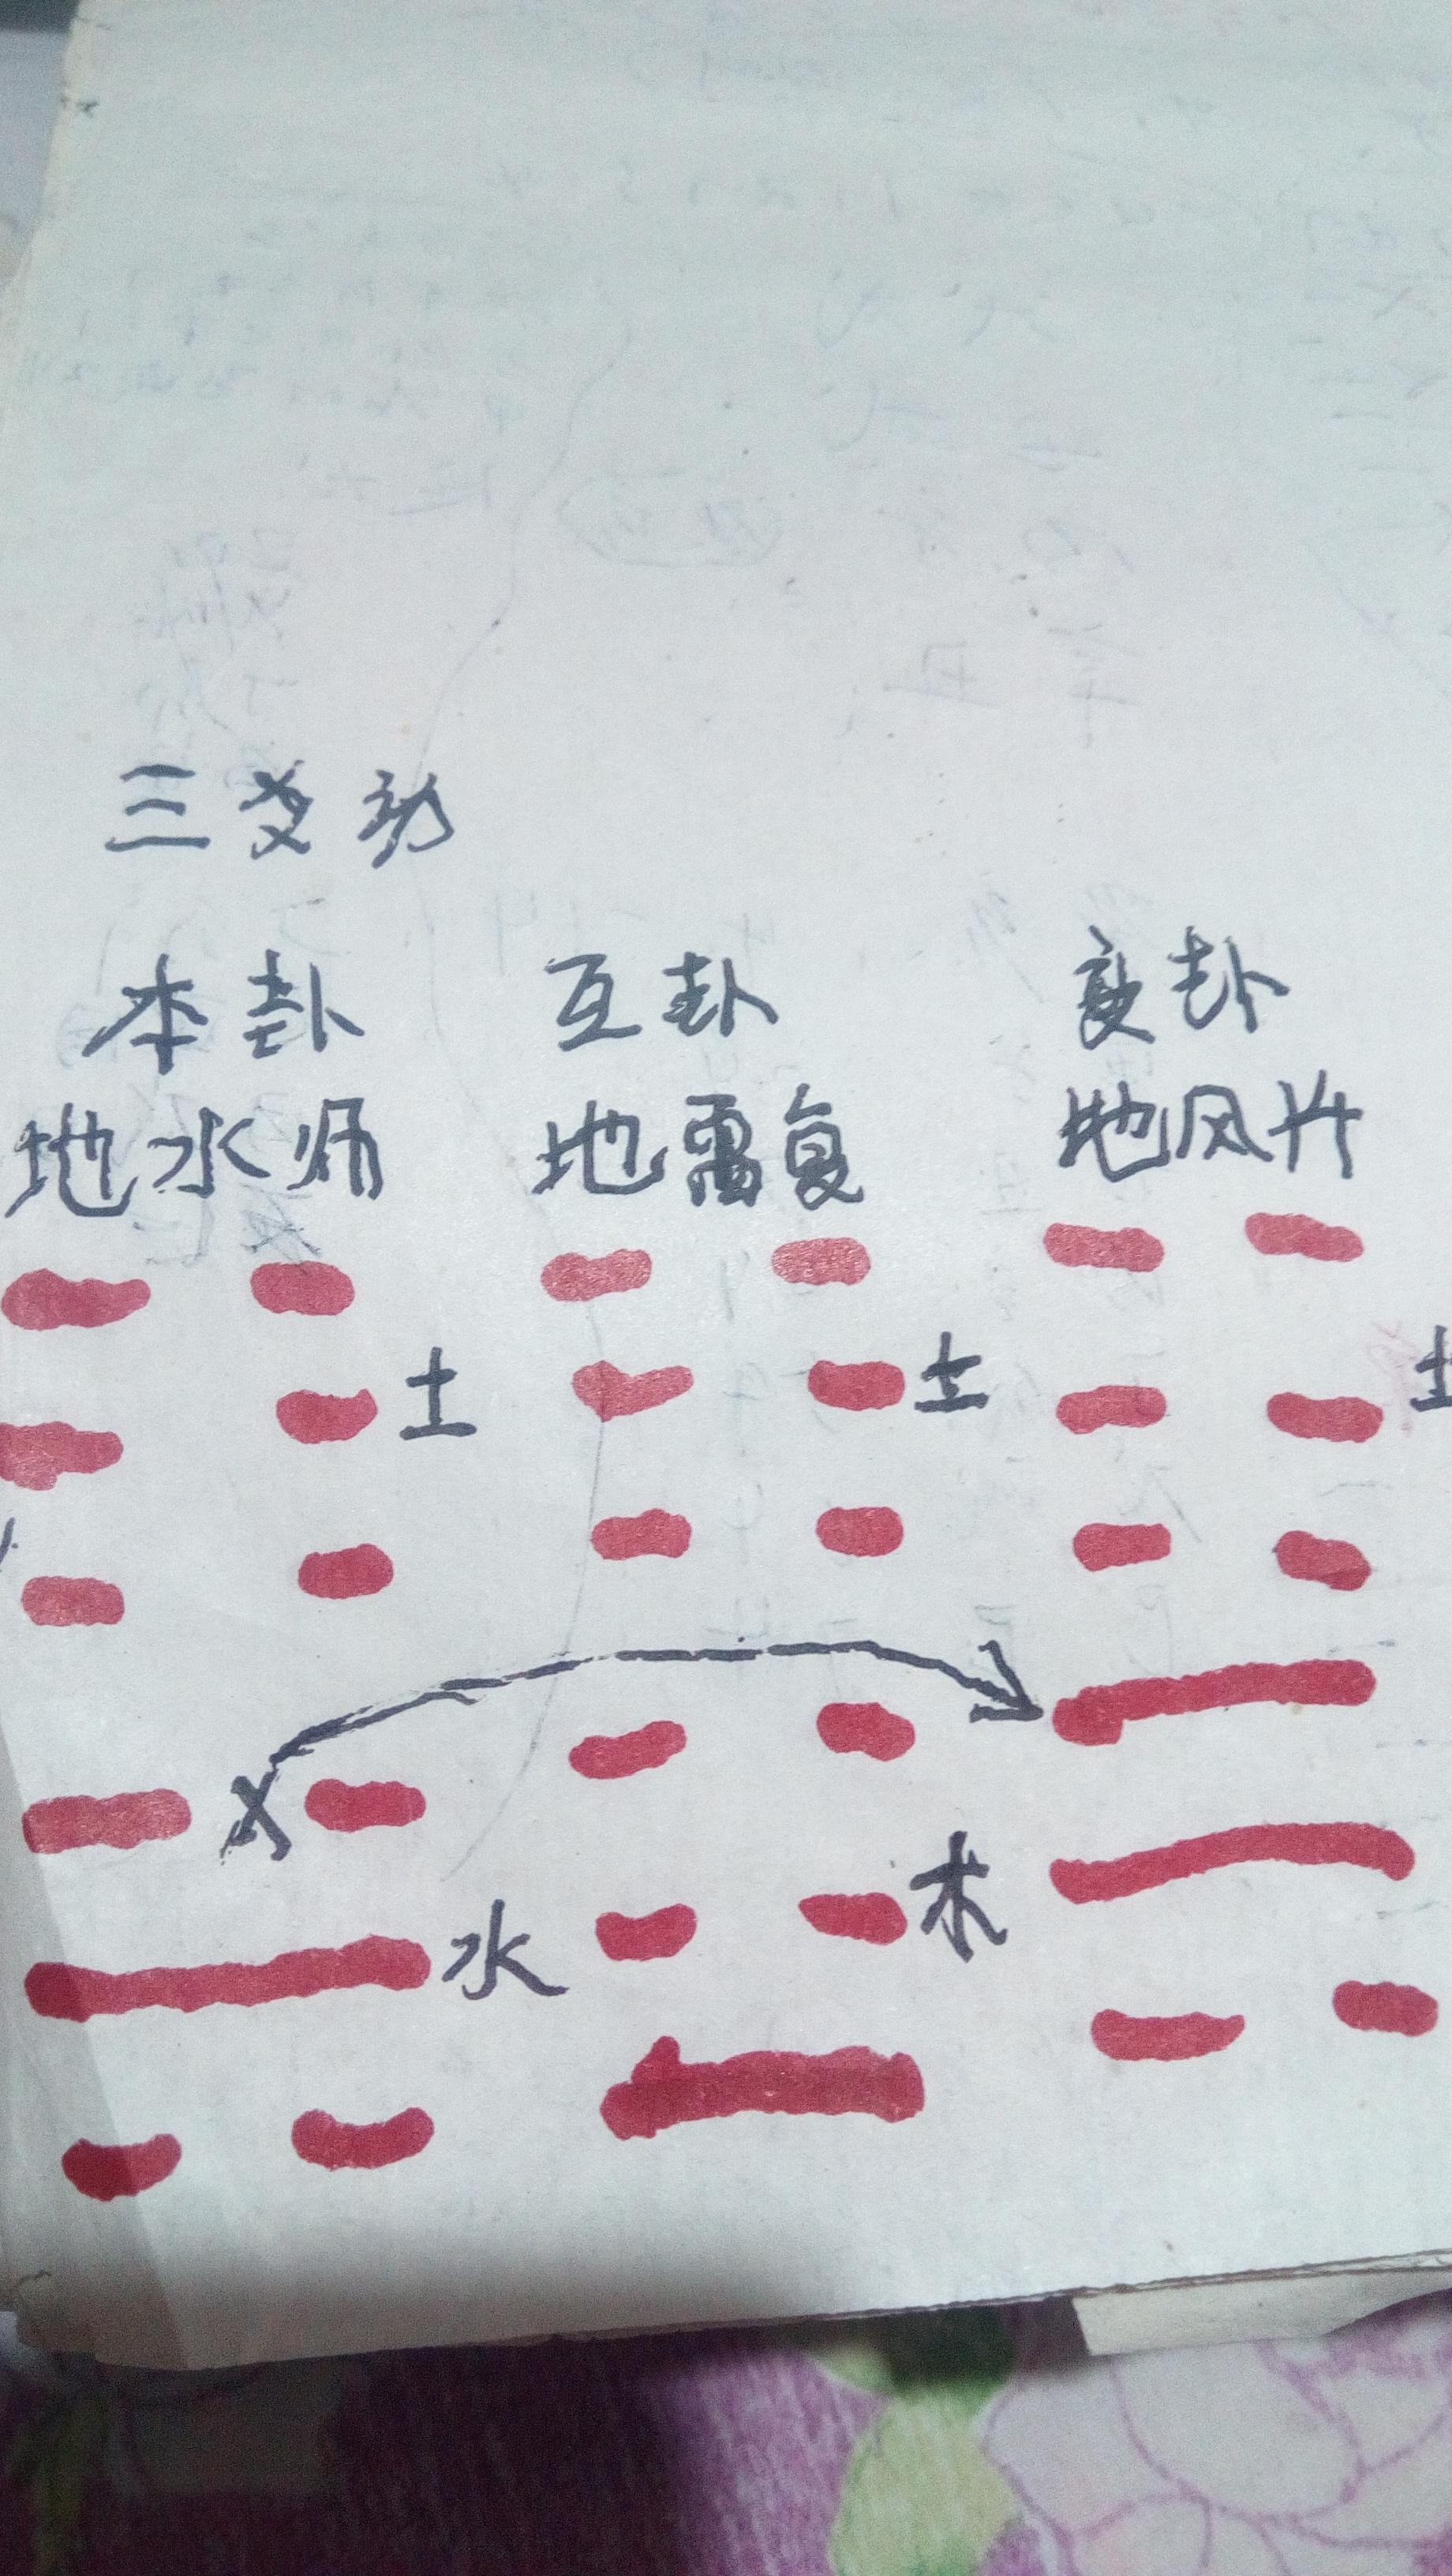 三爻动
本卦 互卦 变卦
地水师 地雷复 地风升
土 土 土
水 木